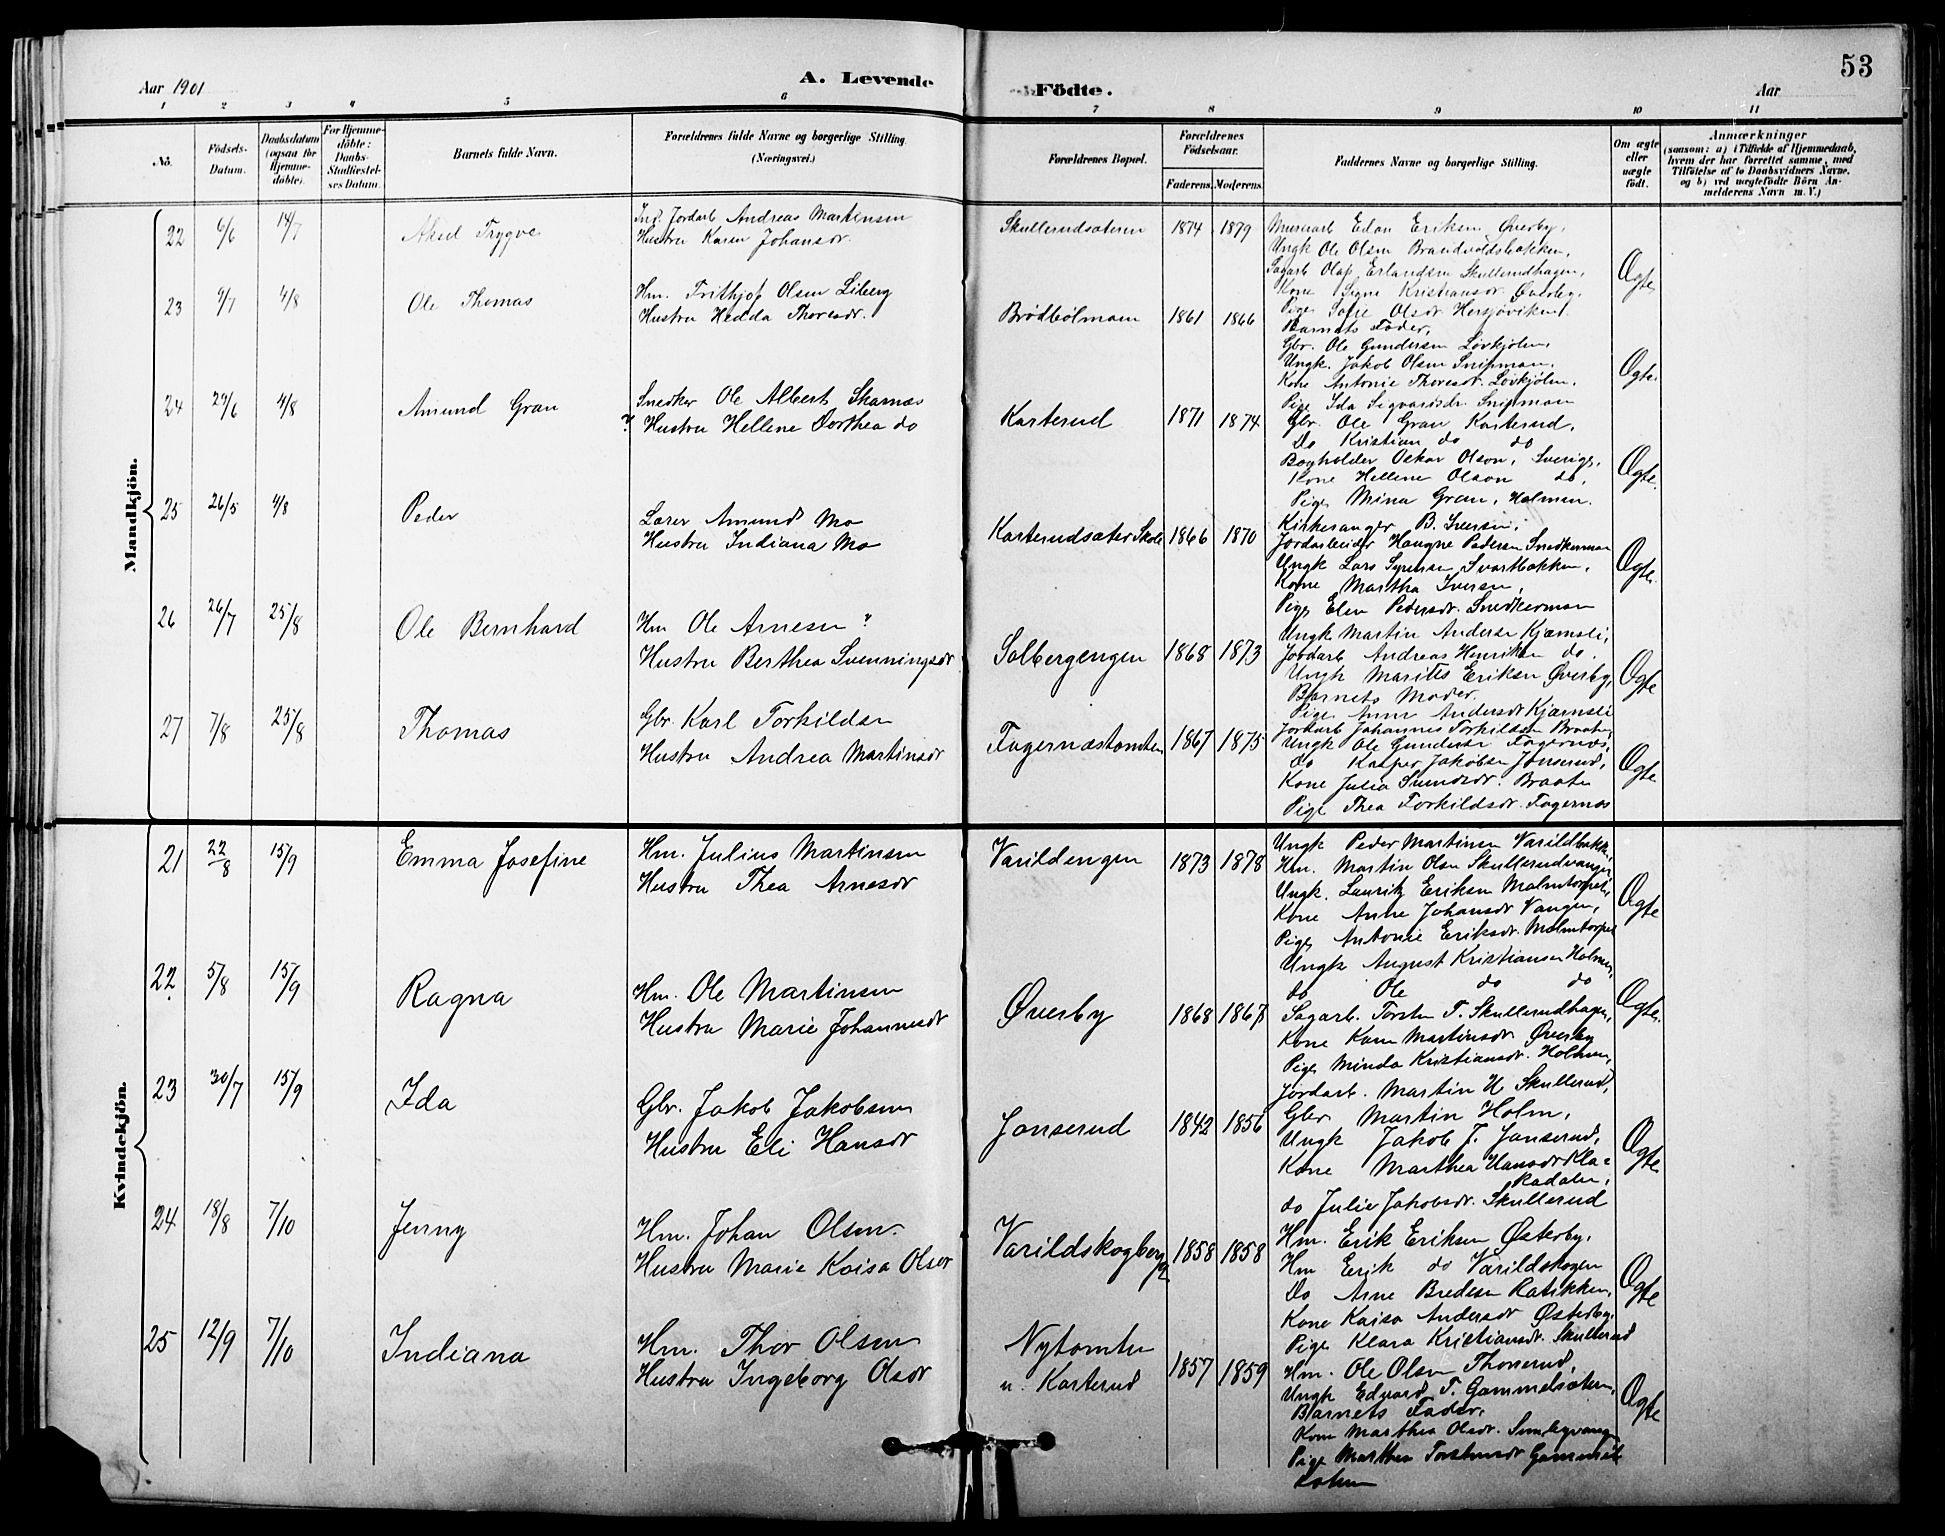 53
Aar 1901
A. Levende
Födte.
Aar
1 2 3 4 5 6 7 8 9 10 11
No.
Födsels-
Datum.
Daabsdatum
(ogsaa for
Hjemme-
döbte).
For Hjemme-
döbte:
Daabs-
Stadfæstel-
ses Datum.
Barnets fulde Navn.
Forældrenes fulde Navne og borgerlige Stilling.
(Næringsvei.)
Forældrenes Bopæl.
Forældrenes
Födselsaar.
Faderens. Moderens.
Faddernes Navne og borgerlige Stilling.
Om ægte
eller
uægte
födt.
Anmærkninger
(saasom: a) i Tilfælde af Hjemmedaab,
hvem der har forrettet samme, med
Tilföielse af to Daabsvidners Navne,
og b) ved uægtefödte Börn An-
melderens Navn m. V.)
Mandkjön.
22 6/6 14/7 Aksel Trygve
Ind. Jordarb Andreas Martinsen
Hustru Karen Johansdr.
Skullerudsæteren 1874 1879
Murerarb Edan Eriksen Øverby,
Ungk Ole Olsen Brandvoldsbakken,
Sagarb Olaf Erlandsen Skullerudhagen,
Kone Signe Kristiansdr. Øverby,
Pige Sofie Olsdr
Ægte
23 9/7 4/8 Ole Thomas
Hm. Frithjof Olsen Liberg
Hustru Hedda Thoresdr.
Brødbølmoen 1861 1866
Barnets Fader,
Gbr. Ole Gundersen Løvkjølen,
Ungk. Jakob Olsen Snipman,
Kone Antonie Thoresdr. Løvkjølen,
Pige Ida Sigvardsdr. Snipman
Ægte.
24 29/6 4/8 Amund Gran
Snedker Ole Albert Skarnæs
? Hustru Hellene Dorthea do
Karterud 1871 1874
Gbr. Ole Gran Karterud,
Do Kristian do do
Bogholder Oskar Olson, Sverige,
Kone Hellene Olson do,
Pige Mina Gran, Holmen.
Ægte.
25 26/5 4/8 Peder
Lærer Amund Mo
Hustru Indiana Mo
Karterudsæter Skole 1866 1870
Kirkesanger B. Iversen,
Jordarbeider Haagne Pedersen Snedkermoen
Ungk Lars Syversen Svartbakken,
Kone Martha Iversen,
Pige Elen Pedersdr. Snedkermoen
Ægte.
26 26/7 25/8 Ole Bernhard
Hm Ole Arnesen ?
Hustru Berthea Svenningsdr
Solbergengen 1868 1873
Ungk Martin Andersen Kjærnsli,
Jordarb Andreas Henriksen do.
Ungk Marius Eriksen Øverby,
Barnets Moder,
Pige Anne Andersdr Kjærnsli
Ægte
27 7/8 25/8 Thomas
Gbr. Karl Torkildsen
Hustru Andrea Martinsdr
Fagernæstomten 1867 1875
Jordarb Johannes Torkildsen Braaten
Ungk Ole Gundersen Fagernæs,
Do Kasper Jakobsen Jonserud,
Kone Julia Svendsdr. Braaten
Pige Thea Torkildsdr. Fagernæs
Ægte
Kvindekjön.
21 22/8 15/9 Emma Josefine
Hm. Julius Martinsen
Hustru Thea Arnesdr
Varildengen 1873 1878
Ungk Peder Martinsen Varildbakk,
Hm. Martin Olsen Skullerudvangen,
Ungk. Lauritz Eriksen Malmtorpet,
Kone Anne Johansdr Vangen,
Pige Antonie Eriksdr. Malmtorpet
Ægte
22 5/8 15/9 Ragna
Hm. Ole Martinsen
Hustru Marie Johannesdr
Øverby 1868 1867
Ungk August Kristiansen Holmen,
do Ole do do
Sagarb. Torsten T. Skullerudhagen,
Kone Karen Martinsdr Øverby
Pige Minda Kristiansdr. Holmen,
Ægte.
23 30/7 15/9 Ida
Gbr. Jakob Jakobsen
Hustru Eli Hansdr
Jonserud 1842 1856
Jordarb. Martin H Skullerud,
Gbr Martin Holm,
Ungk Jakob J. Jonserud,
Kone Marthea Hansdr Kla=
kadalen,
do Julie Jakobsdr. Skullerud
Ægte
24 18/8 7/10 Jenny
Hm. Johan Olsen.
Hustru Marie Kaisa Olsdr
Varildskogberg 1858 1858
Hm. Erik Eriksen Østerby,
Hm Erik do Varildskogen
Do Arne Bredesen Ratikken,
Kone Kaisa Andersdr Østerby,
Pige Klara Kristiansdr. Skullerud
Ægte
25 12/9 7/10 Indiana
Hm. Thor Olsen
Hustru Ingeborg Olsdr
Nytomten
u. Karterud
1857 1859
Hm. Ole Olsen Thonerud,
Ungk Edvard T. Gammelsæteren,
Barnets Fader,
Kone Marthea Olsdr.
Pige Marthea Torstensdr Gammel
sæteren
Ægte